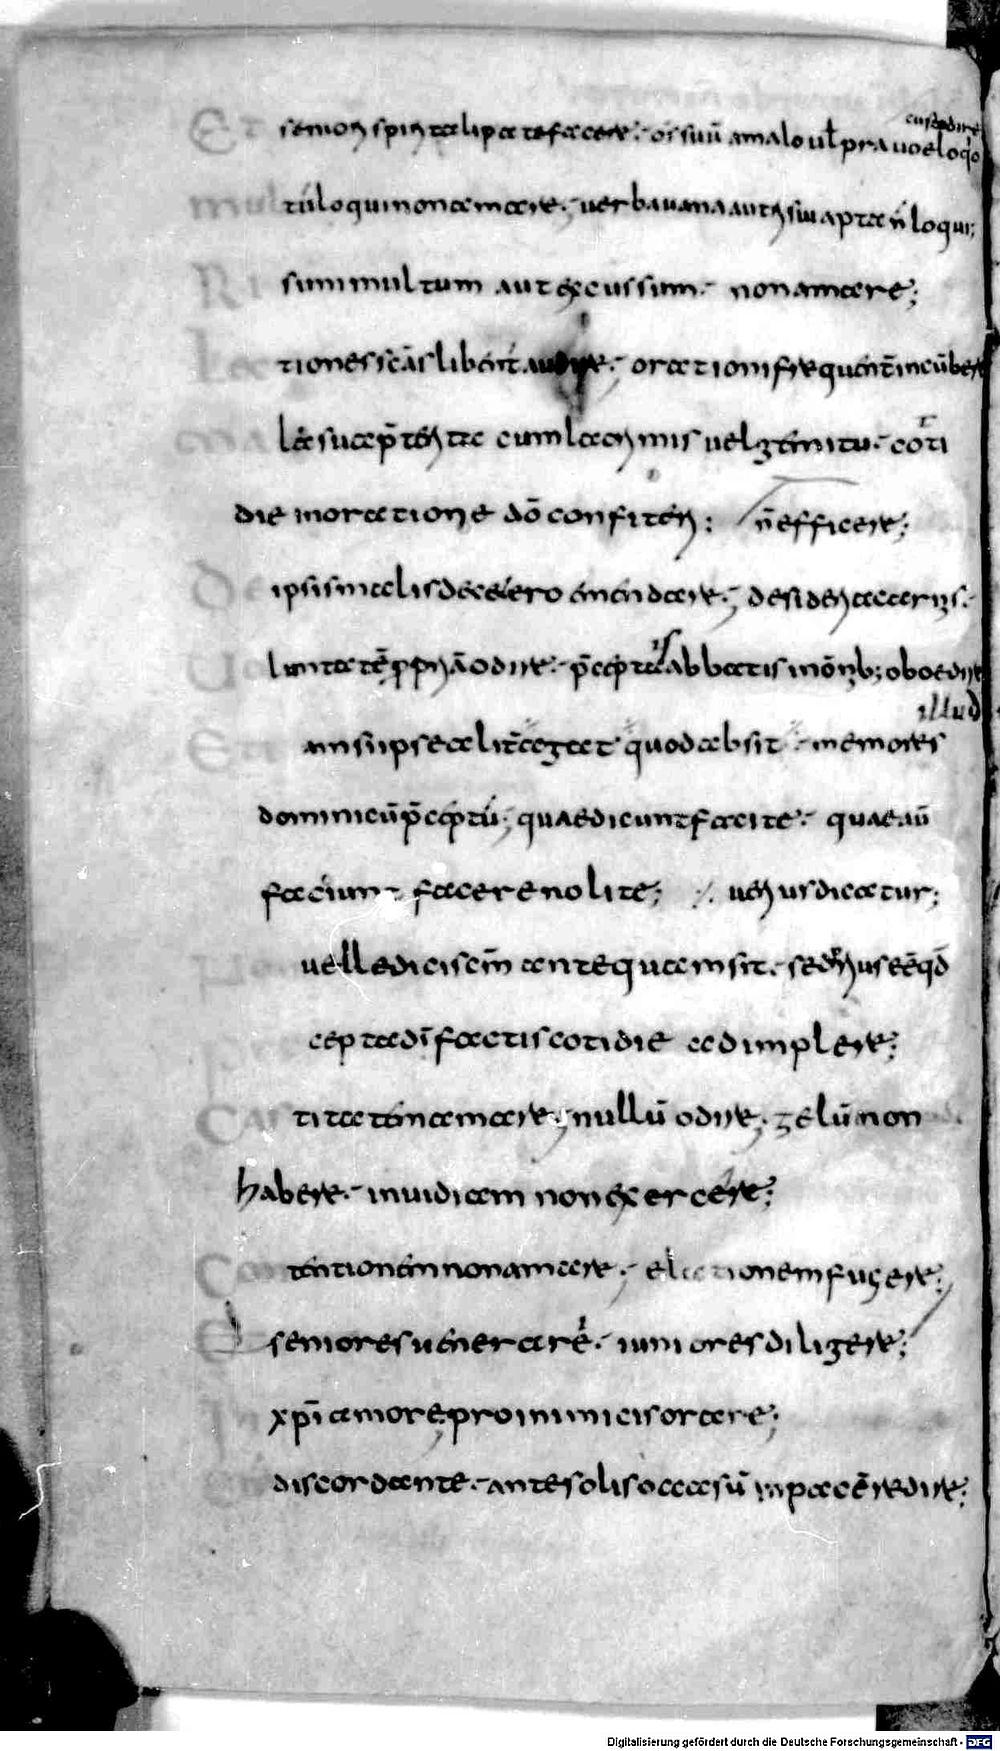 custodire
Et seniori spiritali patefacere; os suū a malo ul pravo eloqio
multū loqui non amare; verba vana aut risui apta ñ loqui;
Risum multum aut excussum non amare;
Lectiones scās libent audire; orationi frequent incūbere
Mala sua p̄terita cum lacrimis vel gemitu coti
die in oratione dō confiteri: ñ efficere;
De ipsis malis de cetero emendare; desideria carnis
Voluntatē ppriā odire; p̄cepta abbatis in omib; oboedire
illud
Etiamsi ipse alit̄ agat quod absit memores
dominicū p̄ceptū; quae dicunt facite quae aū
faciunt facere nolite; verius dicatur;
velle dici scm̄ antequam sit sed prius eē qd
cepta dī factis cotidie adimplere;
Castitatem amare; nullū odire; zelū non
habere invidiam non exercere;
Contentionem non amare; elationem fugere;
Et seniores venerare iuniores diligere;
In xpī amore pro inimicis orare;
discordante ante solis occasū in pacē redire;
Digitalisierung gefördert durch die Deutsche Forschungsgemeinschaft - DFG